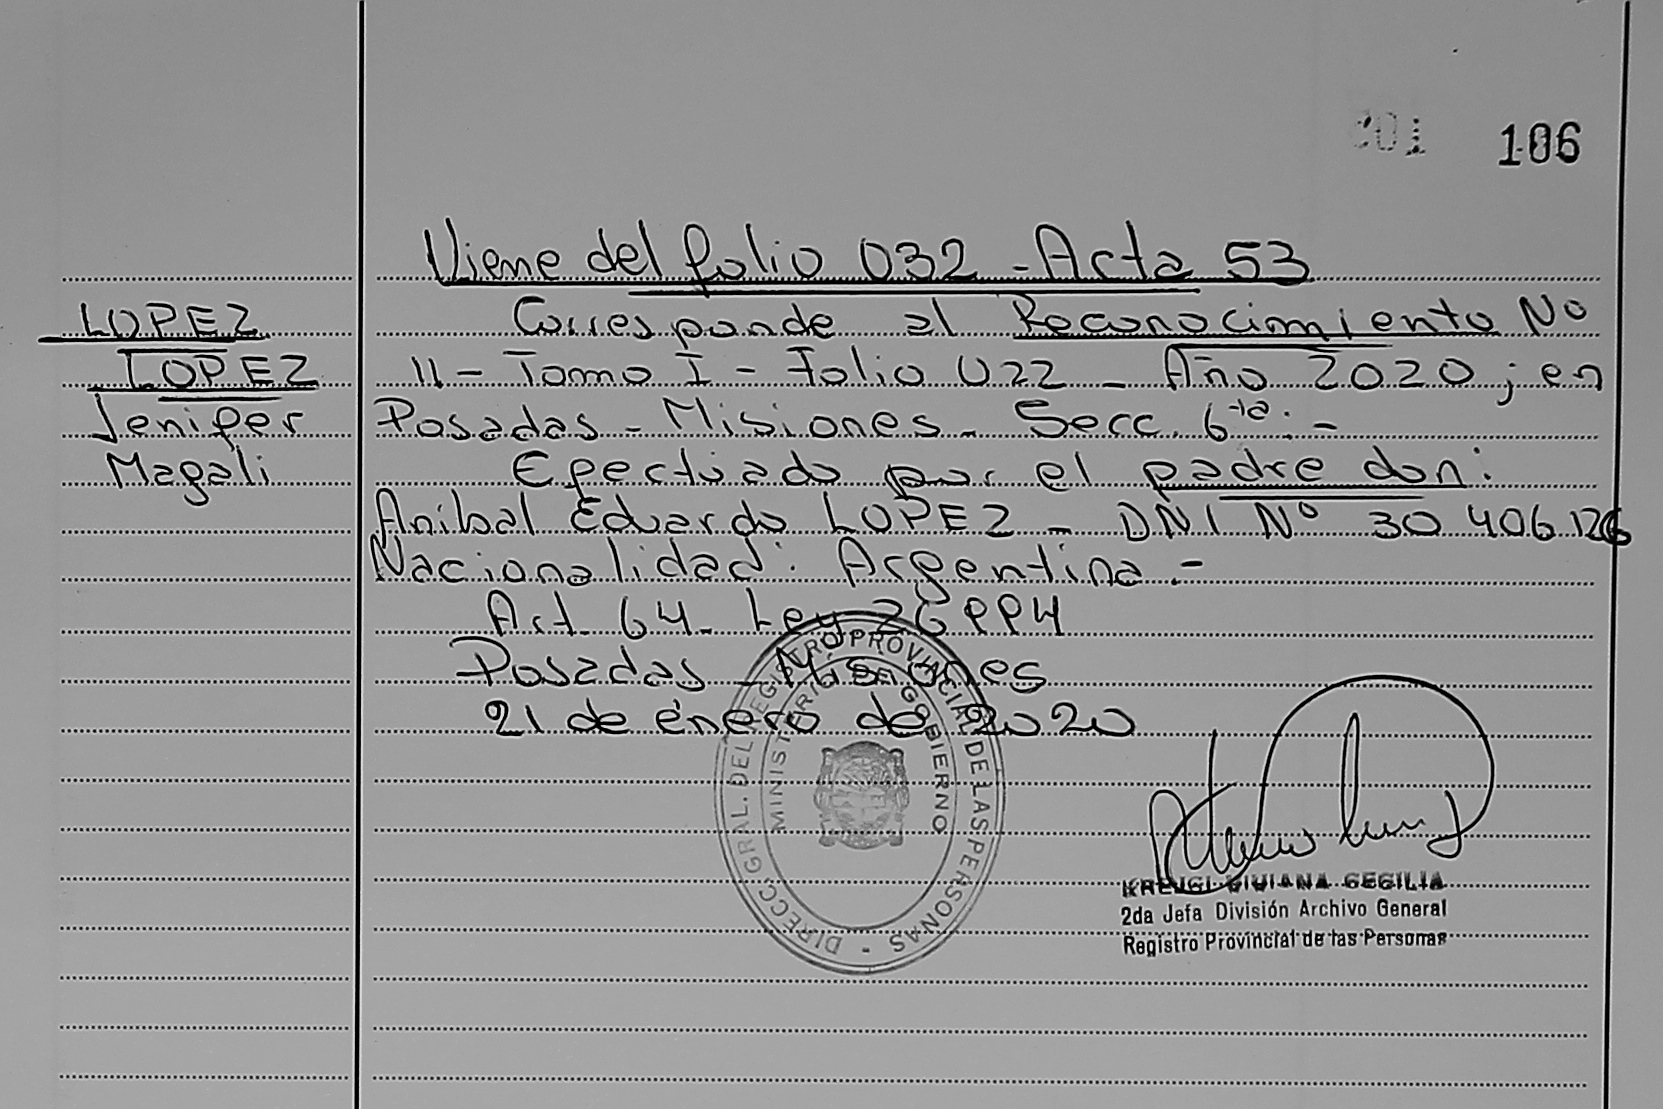 001 106
Viene del folio 032 - Acta 53
LOPEZ
LOPEZ
Jenifer
Magali
Corresponde al Reconocimiento Nº
11 - Tomo I - Folio 022 - Año 2020; en
Posadas - Misiones - Secc. 6ta. -
Efectuado por el padre don:
Anibal Eduardo LOPEZ - DNI Nº 30.406.126
Nacionalidad: Argentina. -
Art. 64 - Ley 26994
Posadas - Misiones
21 de enero de 2020
DIRECC. GRAL. DEL REGISTRO PROVINCIAL DE LAS PERSONAS -
MINISTERIO DE GOBIERNO
VIVIANA CECILIA
2da Jefa División Archivo General
Registro Provincial de las Personas